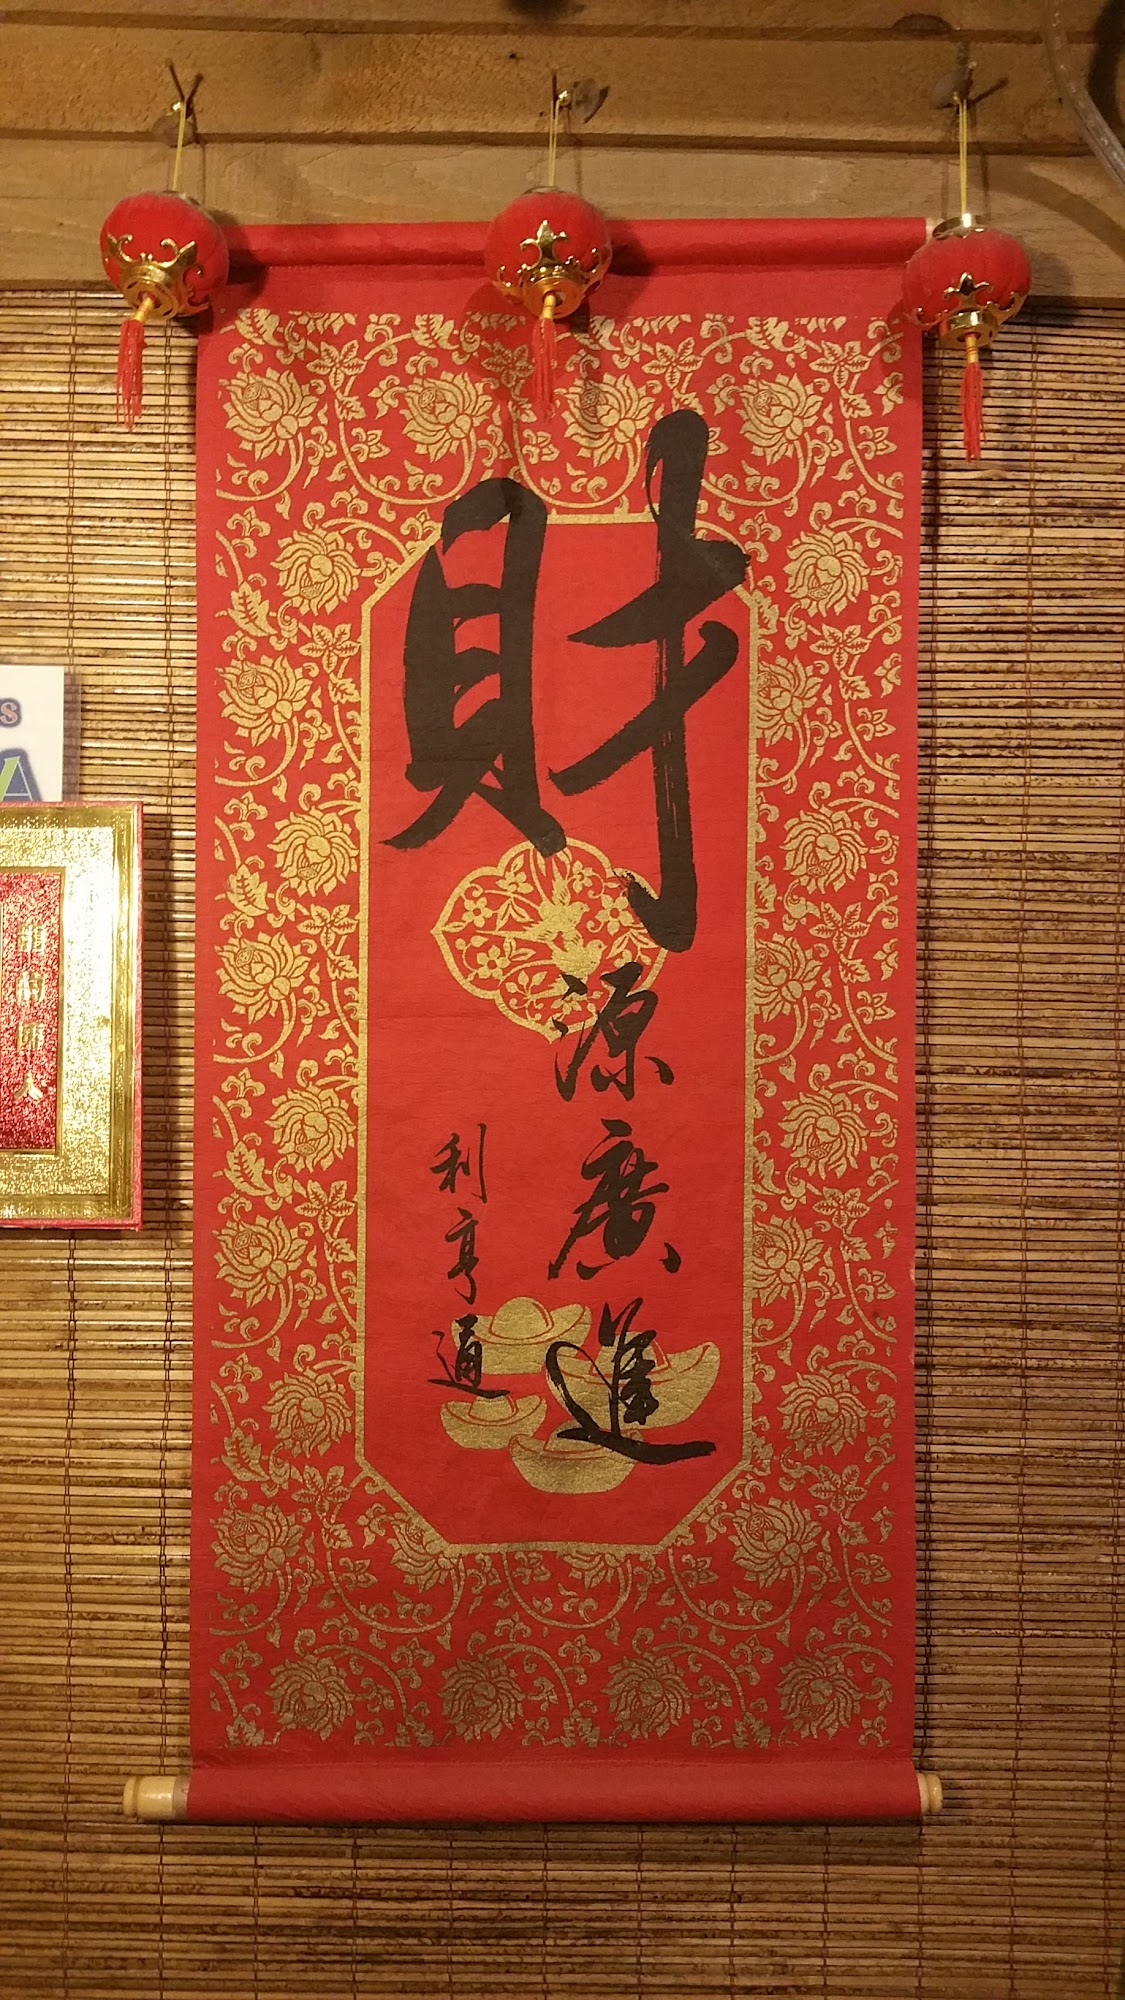 財源廣進
利亨通
S
A